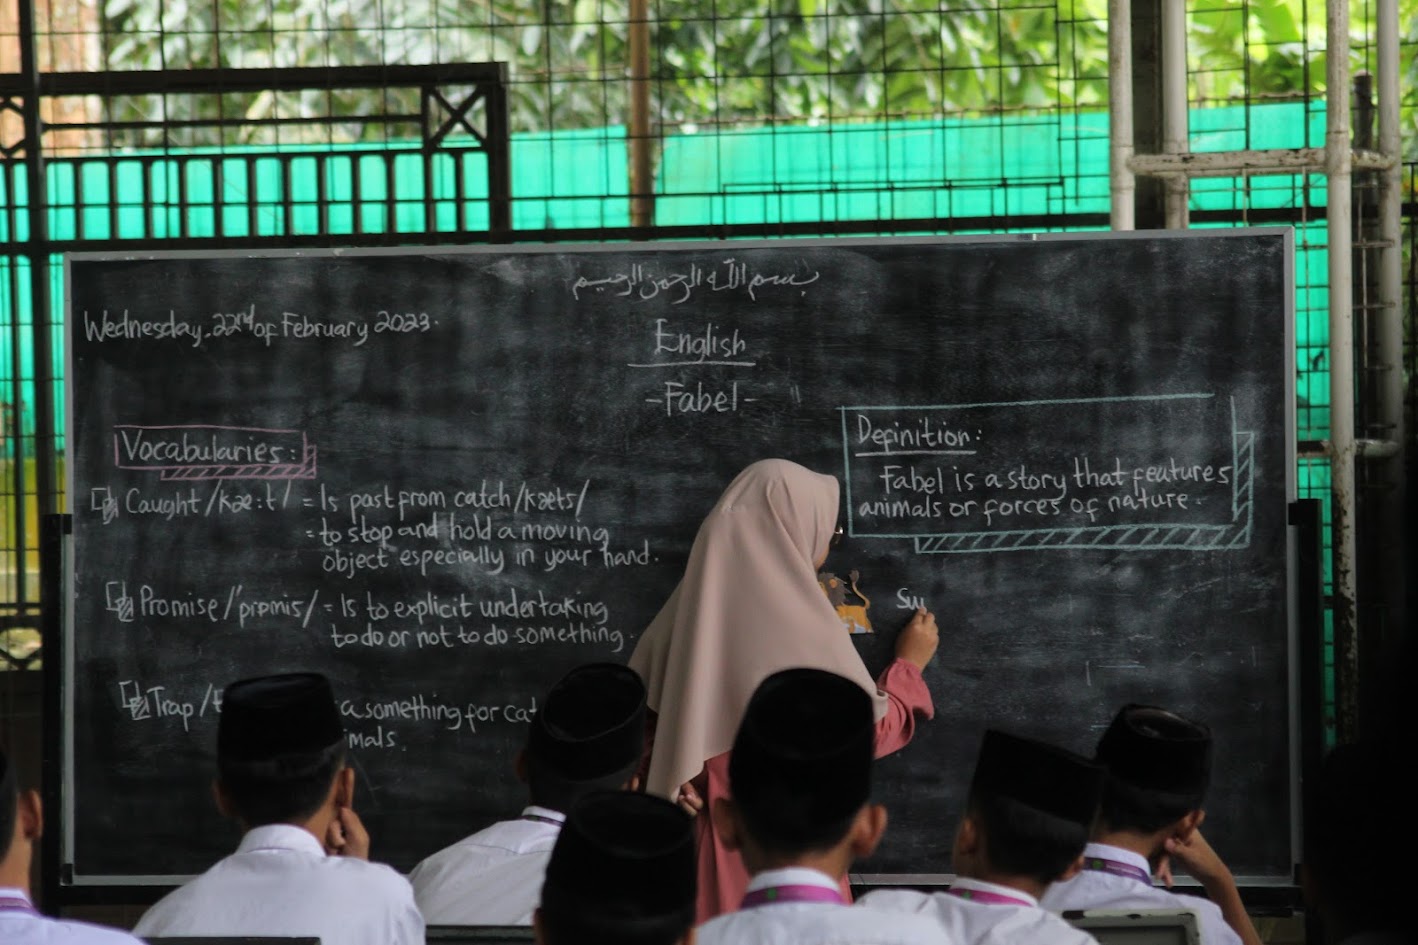 بسم الله الرحمن الرحيم
Wednesday. 22nd of February 2023.
English
-Fabel-
Vocabularies:
Caught /kæ:t/ = Is past from catch /kæts/
= to stop and hold a moving
object especially in your hand.
Promise /'prɒmis/ = Is to explicit undertaking
to do or not to do something.
Trap / a something for cat
imals.
Definition:
Fabel is a story that features
animals or forces of nature.